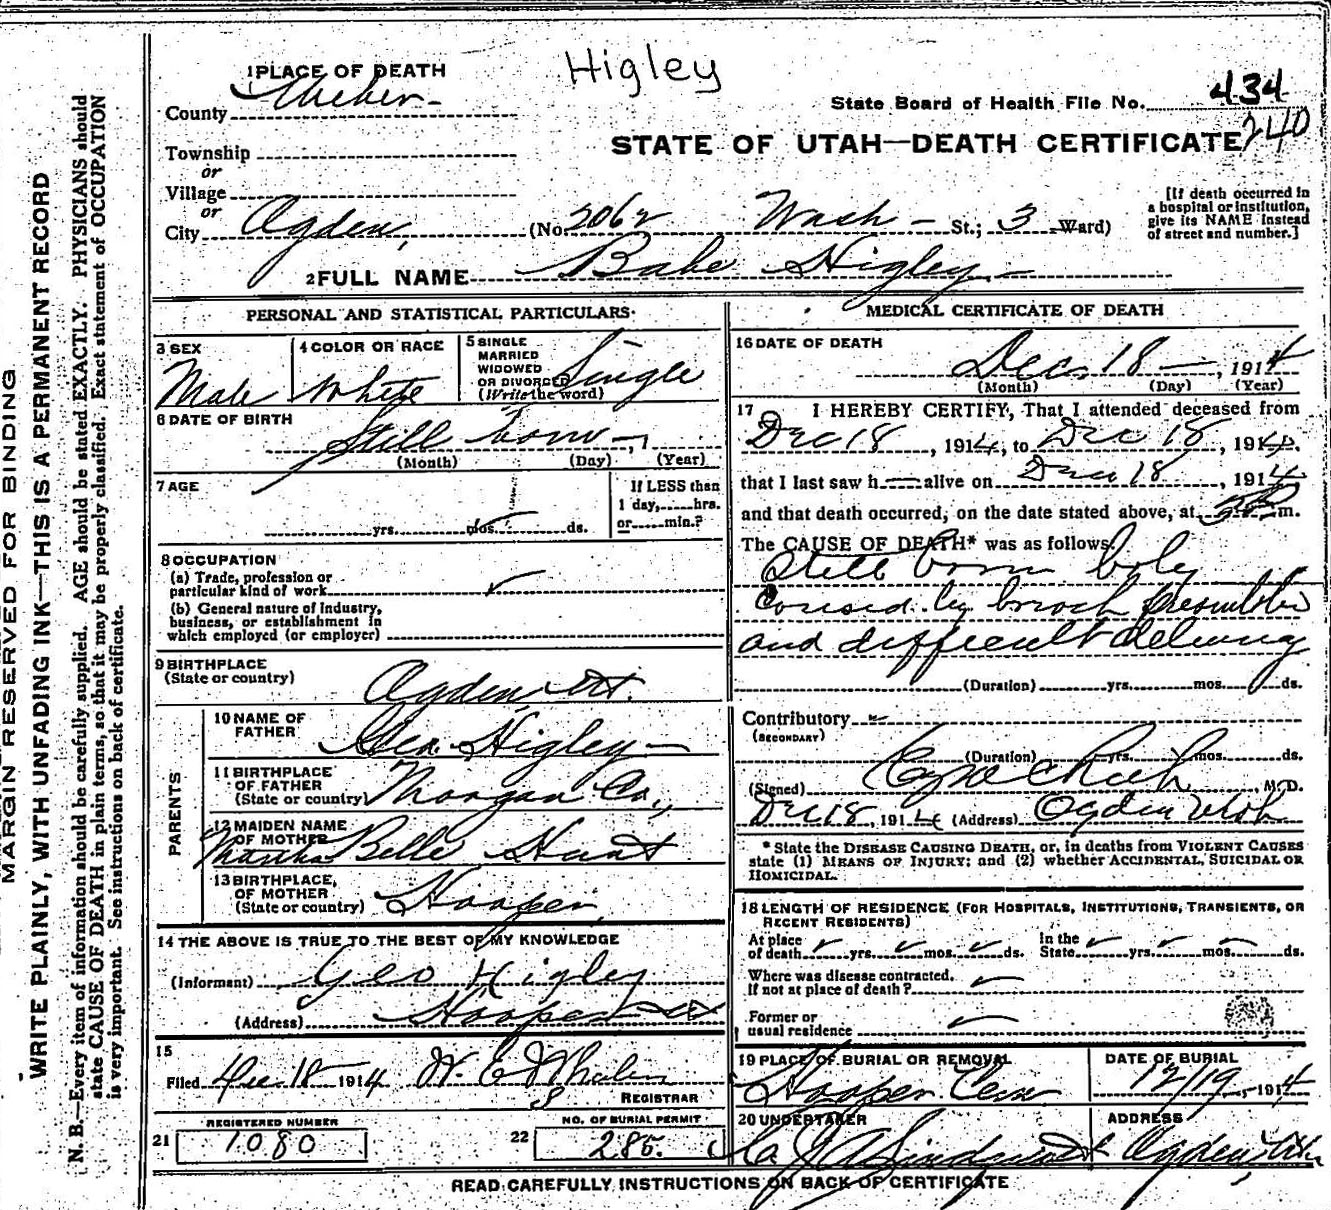 Higley
1 PLACE OF DEATH
County Weber
State Board of Health File No. 434
240
STATE OF UTAH—DEATH CERTIFICATE
Township
or
Village
or
City Ogden, (No. 2062 Wash St.; 3 Ward)
[If death occurred in
a hospital or institution,
give its NAME instead
of street and number.]
2 FULL NAME Babe Higley
PERSONAL AND STATISTICAL PARTICULARS
3 SEX
Male
4 COLOR OR RACE
White
5 SINGLE
MARRIED
WIDOWED
OR DIVORCED
(Write the word)
Single
6 DATE OF BIRTH
Still born
(Month) (Day) (Year)
7 AGE
yrs. mos. ds.
If LESS than
1 day, hrs.
or min.?
8 OCCUPATION
(a) Trade, profession or
particular kind of work
(b) General nature of industry,
business, or establishment in
which employed (or employer)
9 BIRTHPLACE
(State or country)
Ogden Ut.
PARENTS
10 NAME OF
FATHER
Geo. Higley
11 BIRTHPLACE
OF FATHER
(State or country)
Morgan Co.,
12 MAIDEN NAME
OF MOTHER
Martha Belle Hunt
13 BIRTHPLACE,
OF MOTHER
(State or country)
Hooper,
14 THE ABOVE IS TRUE TO THE BEST OF MY KNOWLEDGE
(Informant) Geo Higley
(Address) Hooper Ut
15
Filed Dec. 18 1914
REGISTRAR
21 REGISTERED NUMBER
1080
22 NO. OF BURIAL PERMIT
285.
MEDICAL CERTIFICATE OF DEATH
16 DATE OF DEATH
Dec. 18 , 1914
(Month) (Day) (Year)
17 I HEREBY CERTIFY, That I attended deceased from
Dec 18 , 1914, to Dec 18 , 1914.
that I last saw h alive on Dec 18 , 1914
and that death occurred, on the date stated above, at m.
The CAUSE OF DEATH* was as follows:
Still born boby
coused by breach
and difficult delivery
(Duration) yrs. mos. ds.
Contributory
(SECONDARY)
(Duration) yrs. mos. ds.
(Signed) , M.D.
Dec 18, 1914 (Address) Ogden Utah
* State the DISEASE CAUSING DEATH, or, in deaths from VIOLENT CAUSES
state (1) MEANS OF INJURY; and (2) whether ACCIDENTAL, SUICIDAL OR
HOMICIDAL.
18 LENGTH OF RESIDENCE (FOR HOSPITALS, INSTITUTIONS, TRANSIENTS, OR
RECENT RESIDENTS)
At place
of death yrs. mos. ds.
In the
State yrs. mos. ds.
Where was disease contracted.
If not at place of death?
Former or
usual residence
19 PLACE OF BURIAL OR REMOVAL
Hooper Cem
DATE OF BURIAL
12/19, 1914
20 UNDERTAKER
ADDRESS
Ogden, Utah
READ CAREFULLY INSTRUCTIONS ON BACK OF CERTIFICATE
MARGIN RESERVED FOR BINDING
WRITE PLAINLY, WITH UNFADING INK—THIS IS A PERMANENT RECORD
N. B.—Every item of information should be carefully supplied. AGE should be stated EXACTLY. PHYSICIANS should
state CAUSE OF DEATH in plain terms, so that it may be properly classified. Exact statement of OCCUPATION
is very important. See instructions on back of certificate.